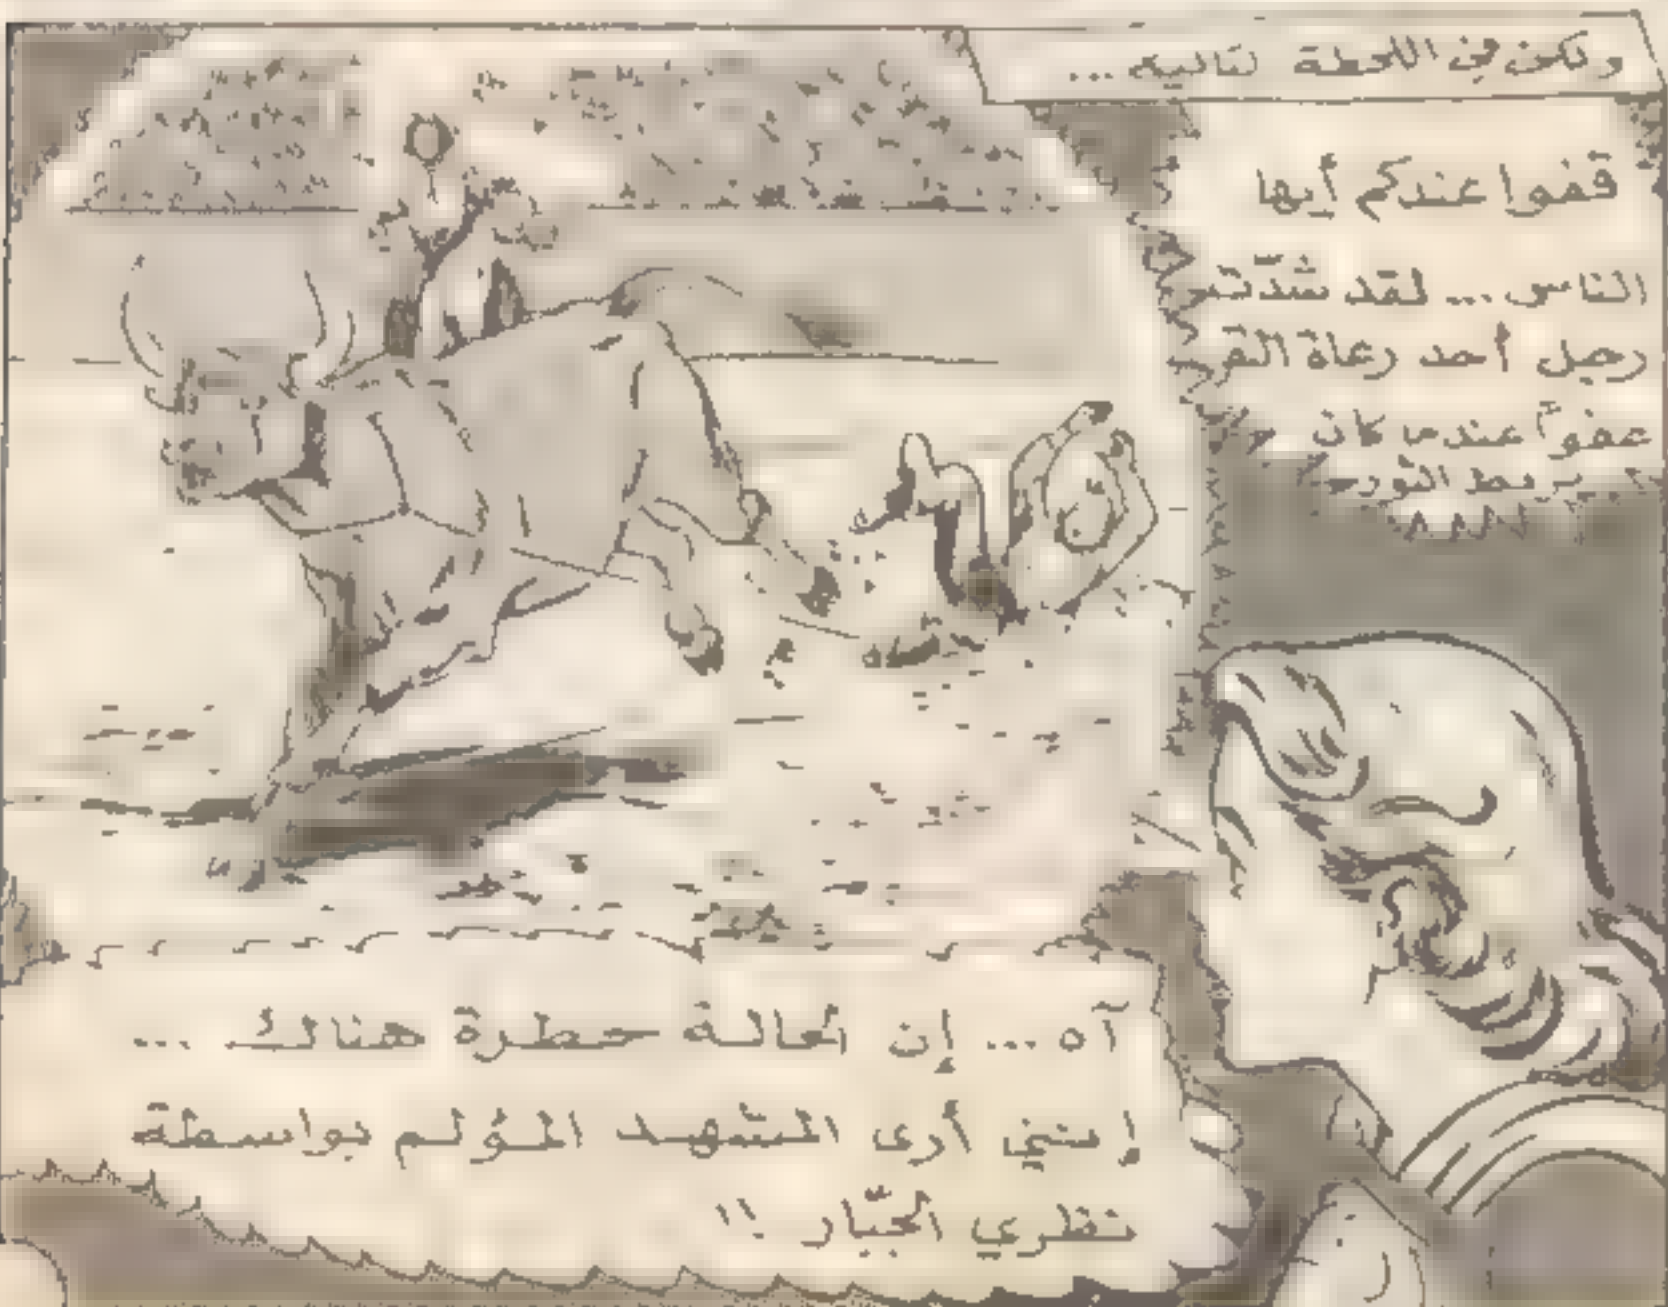 ولكن في اللحظة لتاليه ...
قفوا عندكم أيها
الناس ... لقد شدّت
رجل أحد رعاة البقر
عفواً عندما كان
يربط الثور
آه ... إن الحالة خطرة هناك ...
إنني أرى المشهد المؤلم بواسطة
نظري الجبّار !!